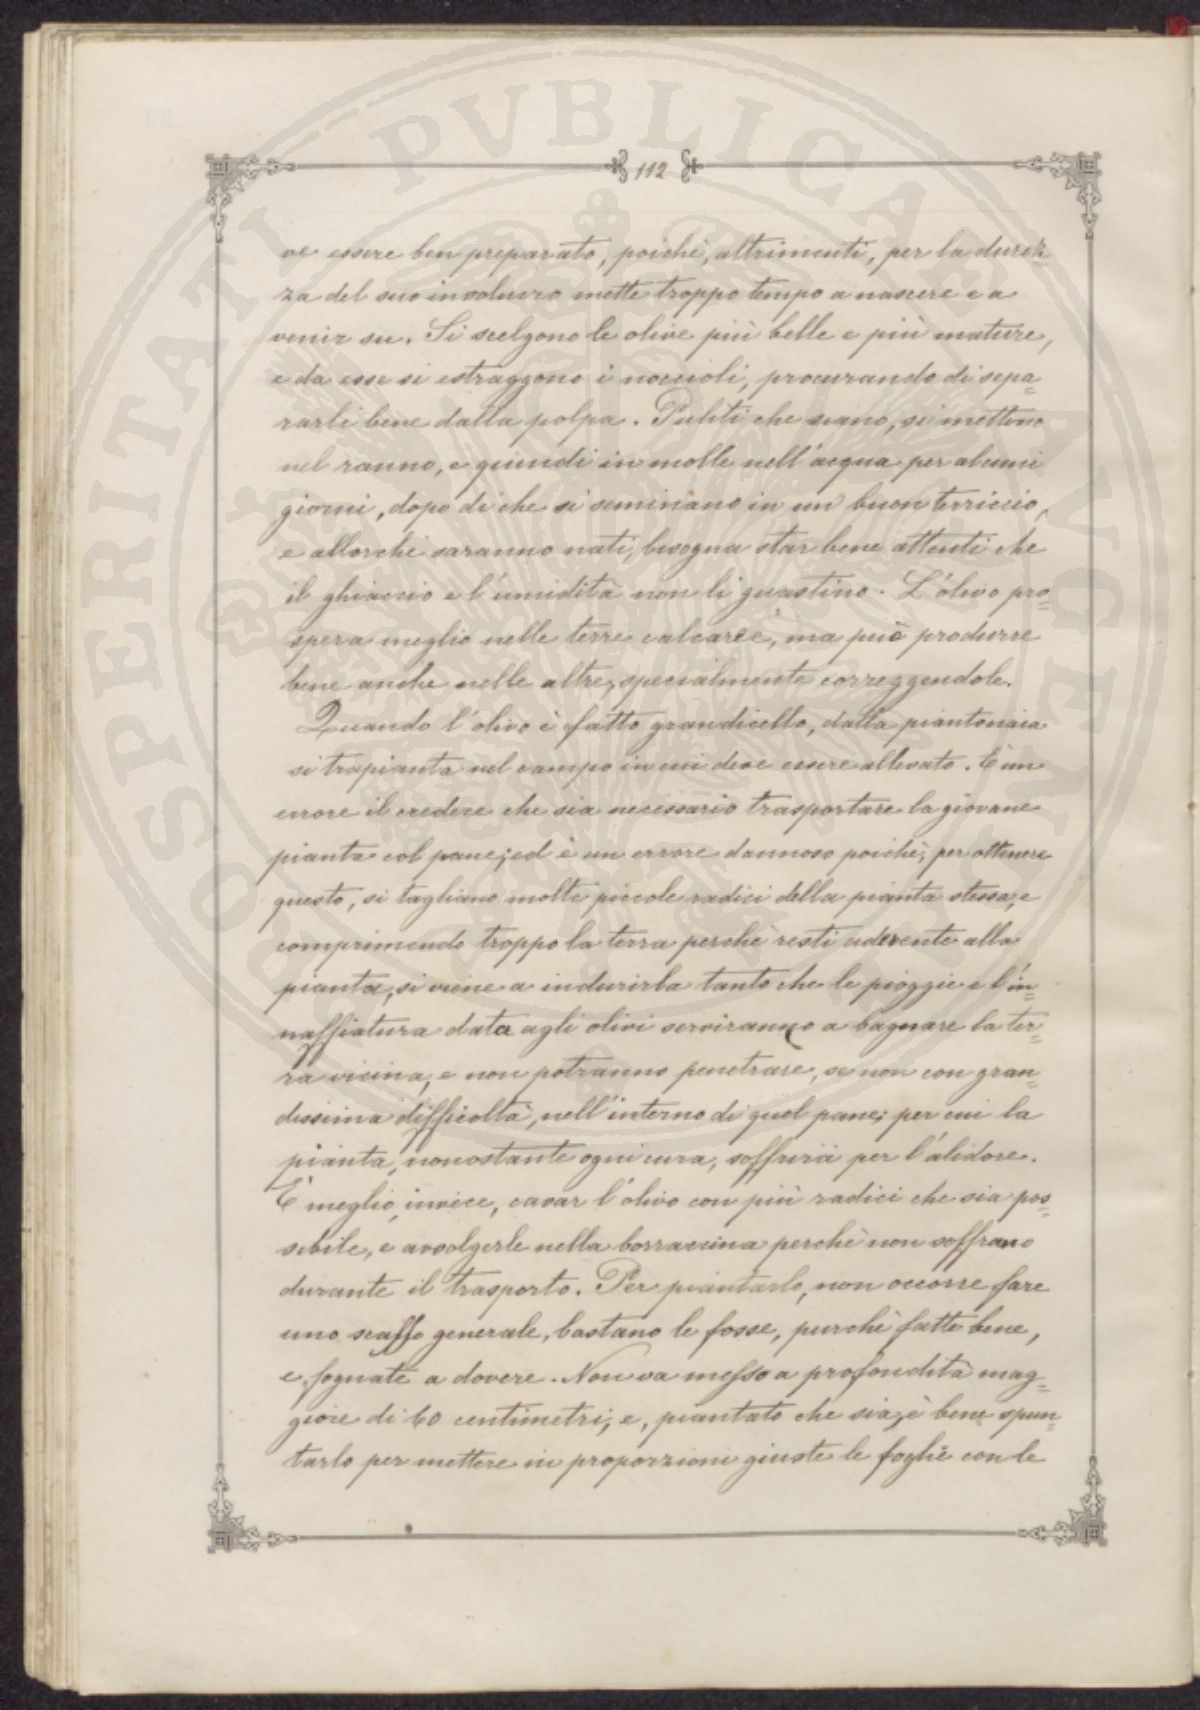 112
ve essere ben preparato, poichè, altrimenti, per la durez=
za del suo involucro mette troppo tempo a nascere e a
venir su. Si scelgono le olive più belle e più mature,
e da esse si estraggono i noccioli, procurando di sepa=
rarli bene dalla polpa. Puliti che siano, si mettono
nel ranno, e quindi in molle nell'acqua per alcuni
giorni, dopo di che si seminano in un buon terriccio,
e allorchè saranno nati, bisogna star bene attenti che
il ghiaccio e l'umidità non li guastino. L'olivo pro=
spera meglio nelle terre calcaree, ma può produrre
bene anche nelle altre, specialmente correggendole.
Quando l'olivo è fatto grandicello, dalla piantonaia
si trapianta nel campo in cui deve essere allevato. È un
errore il credere che sia necessario trasportare la giovane
pianta col pane; ed è un errore dannoso poichè, per ottenere
questo, si tagliano molte piccole radici della pianta stessa, e
comprimendo troppo la terra perchè resti aderente alla
pianta, si viene a indurirla tanto che le pioggie e l'in=
naffiatura data agli olivi serviranno a bagnare la ter=
ra vicina, e non potranno penetrare, se non con gran=
dissima difficoltà, nell'interno di quel pane; per cui la
pianta, nonostante ogni cura, soffrirà per l'alidore.
È meglio, invece, cavar l'olivo con più radici che sia pos=
sibile, e avvolgerle nella borraccina perchè non soffrano
durante il trasporto. Per piantarlo, non occorre fare
uno scasso generale, bastano le fosse, purchè fatte bene,
e fognate a dovere. Non va messo a profondità mag=
giore di 60 centimetri; e, piantato che sia, è bene spun=
tarlo per mettere in proporzioni giuste le foglie con le
PROSPERITATI PVBLICAE AVGENDAE